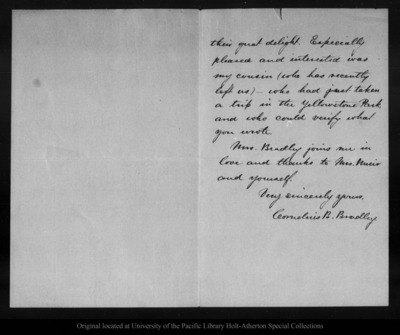 their great delight. Especially
pleased and interested was
my cousin (who has recently
left us) – who had just taken
a trip in the Yellowstone Park
and who could verify what
you wrote.
Mrs. Bradley joins me in
love and thanks to Mrs. Muir
and yourself.
Very sincerely yours,
Cornelius B. Bradley
Original located at University of the Pacific Library Holt-Atherton Special Collections